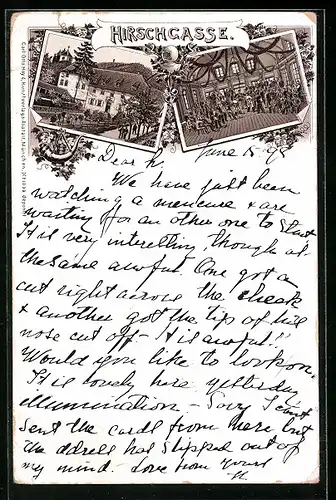 HIRSCHGASSE.
Dear
June 15. 95
We have just been
watching a mensure & are
waiting for an other one to start
It is very interesting, though at
the same awful. One got a
cut right across the cheek
& another got the tip of his
nose cut off - it is awful!!
Would you like to look on.
It is lovely here yesterday
illumination - Sorry I can't
sent the cards from here but
the address has slipped out of
my mind - Love from yours